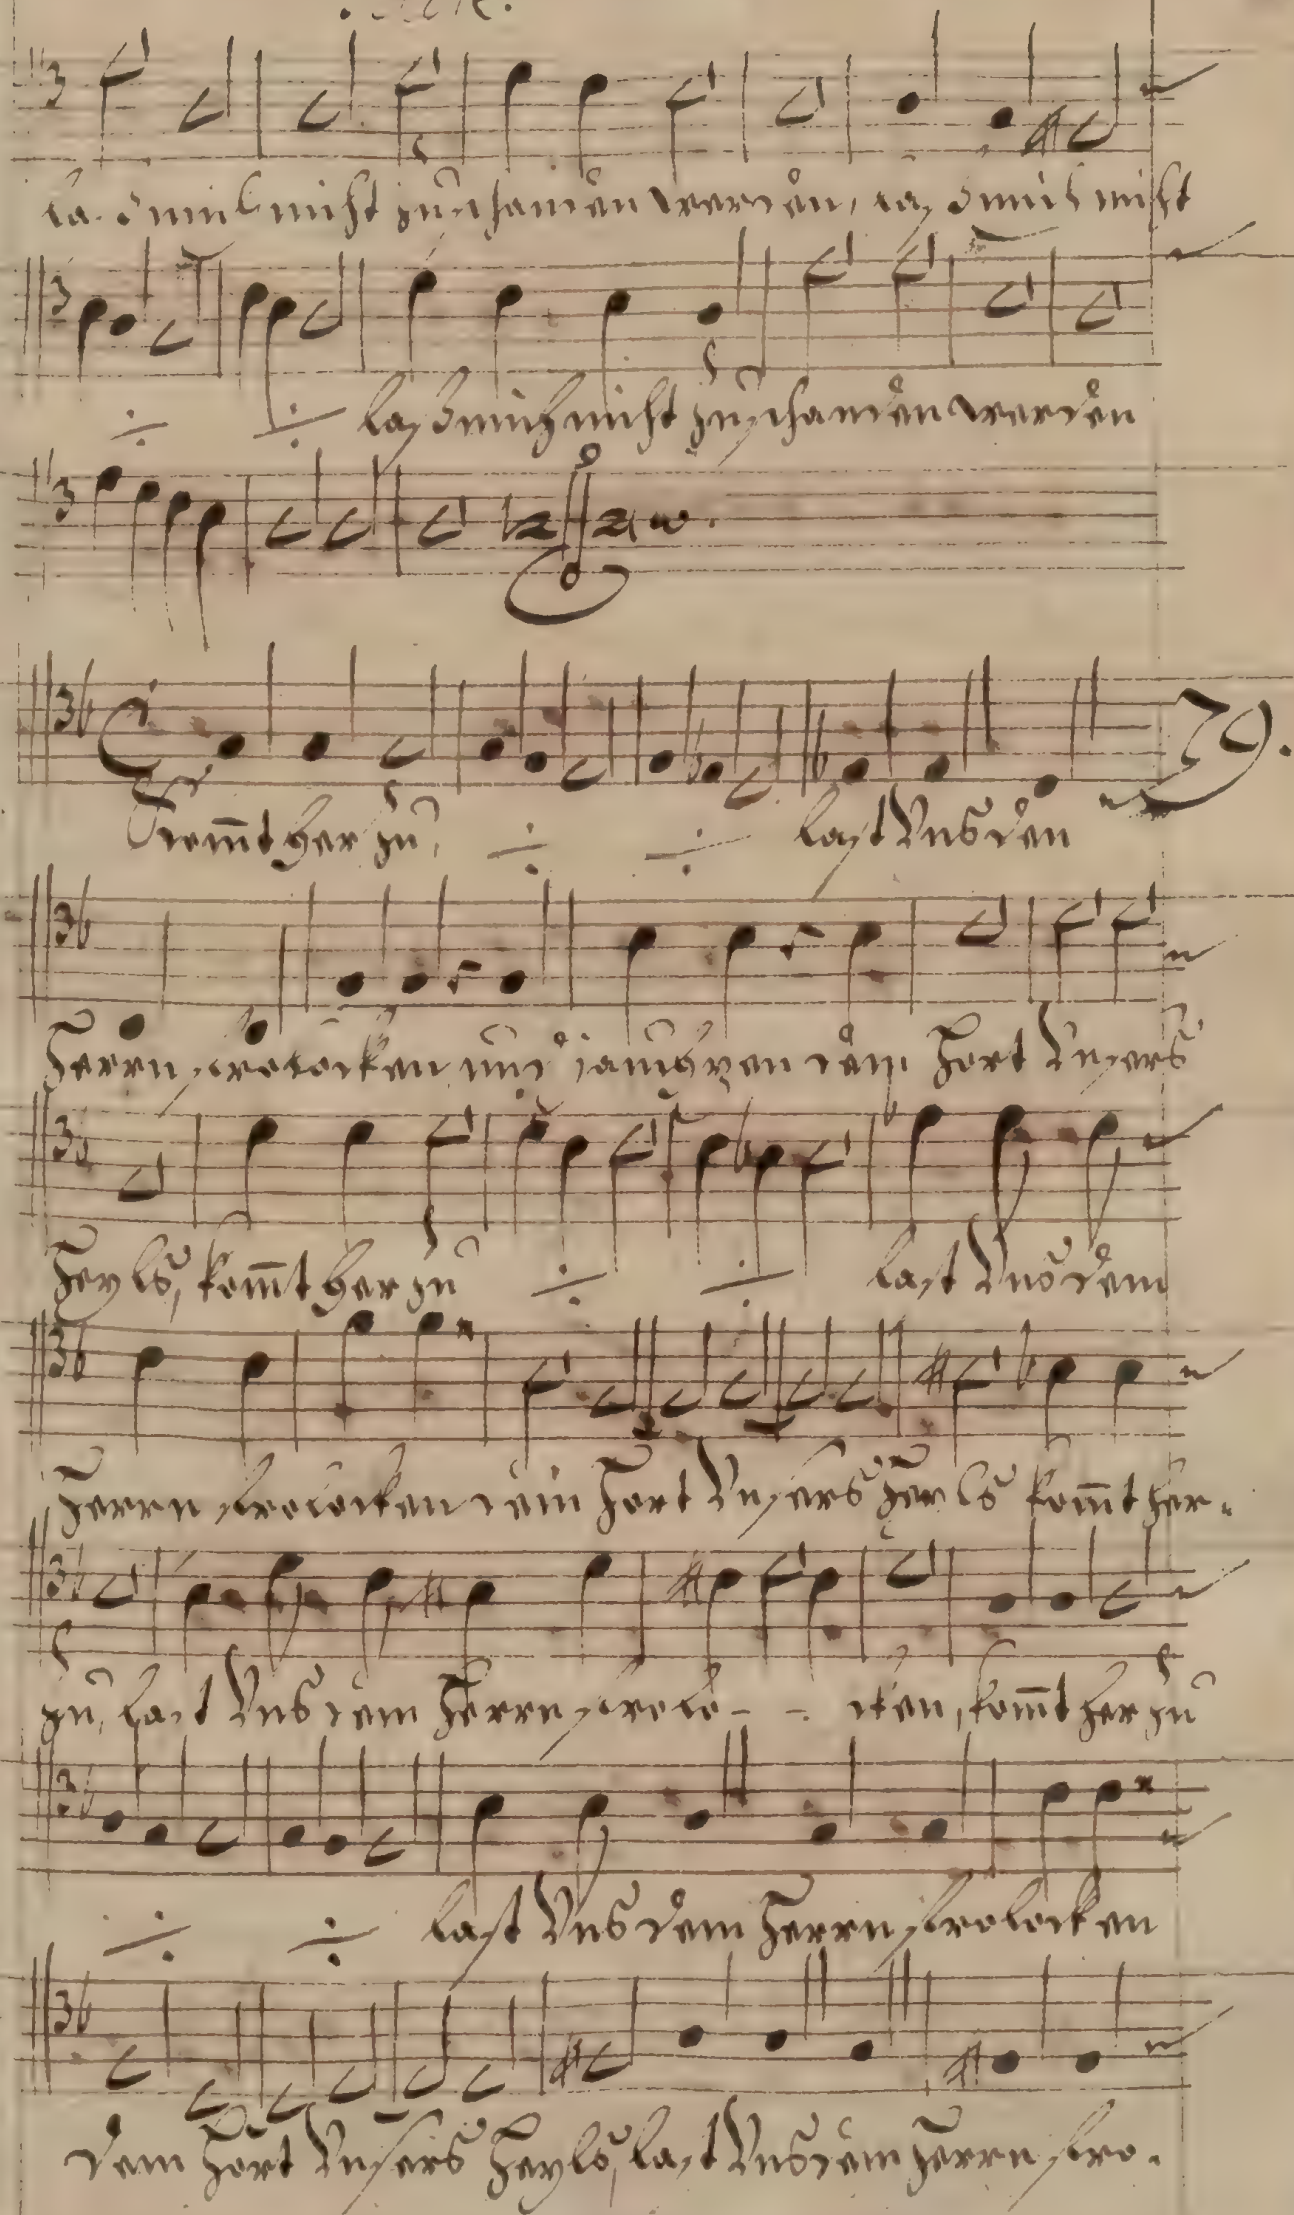 laß mich nicht zu schanden werden, laß mich nicht
÷ ÷ laß mich nicht zu schanden werden
79.
Kom̅t her zu, ÷ ÷ last Vns den
Herrn frolocken und jauchzen dem Hort Vnsers
Heyls, kom̅t her zu ÷ ÷ last Vns dem
Herrn frolocken dem Hort Vnsers Heyls kom̅t her-
zu, last Vns dem Herrn frolo - - cken, kom̅t her zu
÷ ÷ last Vns dem Herrn frolocken
dem Hort Vnsers Heyls, last Vns dem Herrn fro-